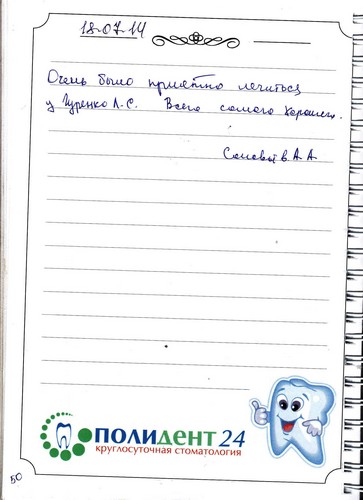 18.07.14
Очень было приятно лечиться
у Гуренко Л.С. Всего самого хорошего.
Соловьёв А.А
ПОЛИДЕНТ 24
круглосуточная стоматология
50